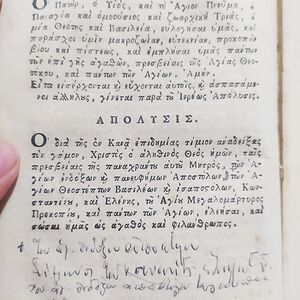 Ο Πατήρ, ὁ Υἱὸς, καὶ τὸ Ἅγιον Πνεῦμα,
Παναγία καὶ ὁμοούσιος καὶ ζωαρχικὴ Τριὰς, ἡ
μία Θεότης καὶ Βασιλεία, εὐλογήσαι ὑμᾶς, καὶ
παράσχοι ὑμῖν μακροζωίαν, εὐτεκνίαν, προκοπὴν
βίου καὶ πίστεως, καὶ ἐμπλήσαι ὑμᾶς πάντων
τῶν ἐπὶ γῆς ἀγαθῶν, πρεσβείαις τῆς Ἁγίας Θεο-
τόκου, καὶ πάντων τῶν Ἁγίων. Ἀμήν.
Εἶτα εἰσέρχονται καὶ εὔχονται αὐτοῖς, καὶ ἀσπασάμε-
νοι ἀλλήλους, γίνεται παρὰ τοῦ Ἱερέως Ἀπόλυσις.
ΑΠΟΛΥΣΙΣ.
Ο διὰ τῆς ἐν Κανᾷ ἐπιδημίας τίμιον ἀναδείξας
τὸν γάμον, Χριστὸς ὁ ἀληθινὸς Θεὸς ἡμῶν, ταῖς
πρεσβείαις τῆς παναχράντου αὐτοῦ Μητρὸς, τῶν
ἁγίων ἐνδόξων καὶ πανευφήμων Ἀποστόλων, τῶν Ἁ-
γίων Θεοστέπτων Βασιλέων καὶ ἰσαποστόλων, Κων-
σταντίνου, καὶ Ἑλένης, τοῦ Ἁγίου Μεγαλομάρτυρος
Προκοπίου, καὶ πάντων τῶν Ἁγίων, ἐλεήσαι, καὶ
σώσαι ἡμᾶς ὡς ἀγαθὸς καὶ φιλάνθρωπος.